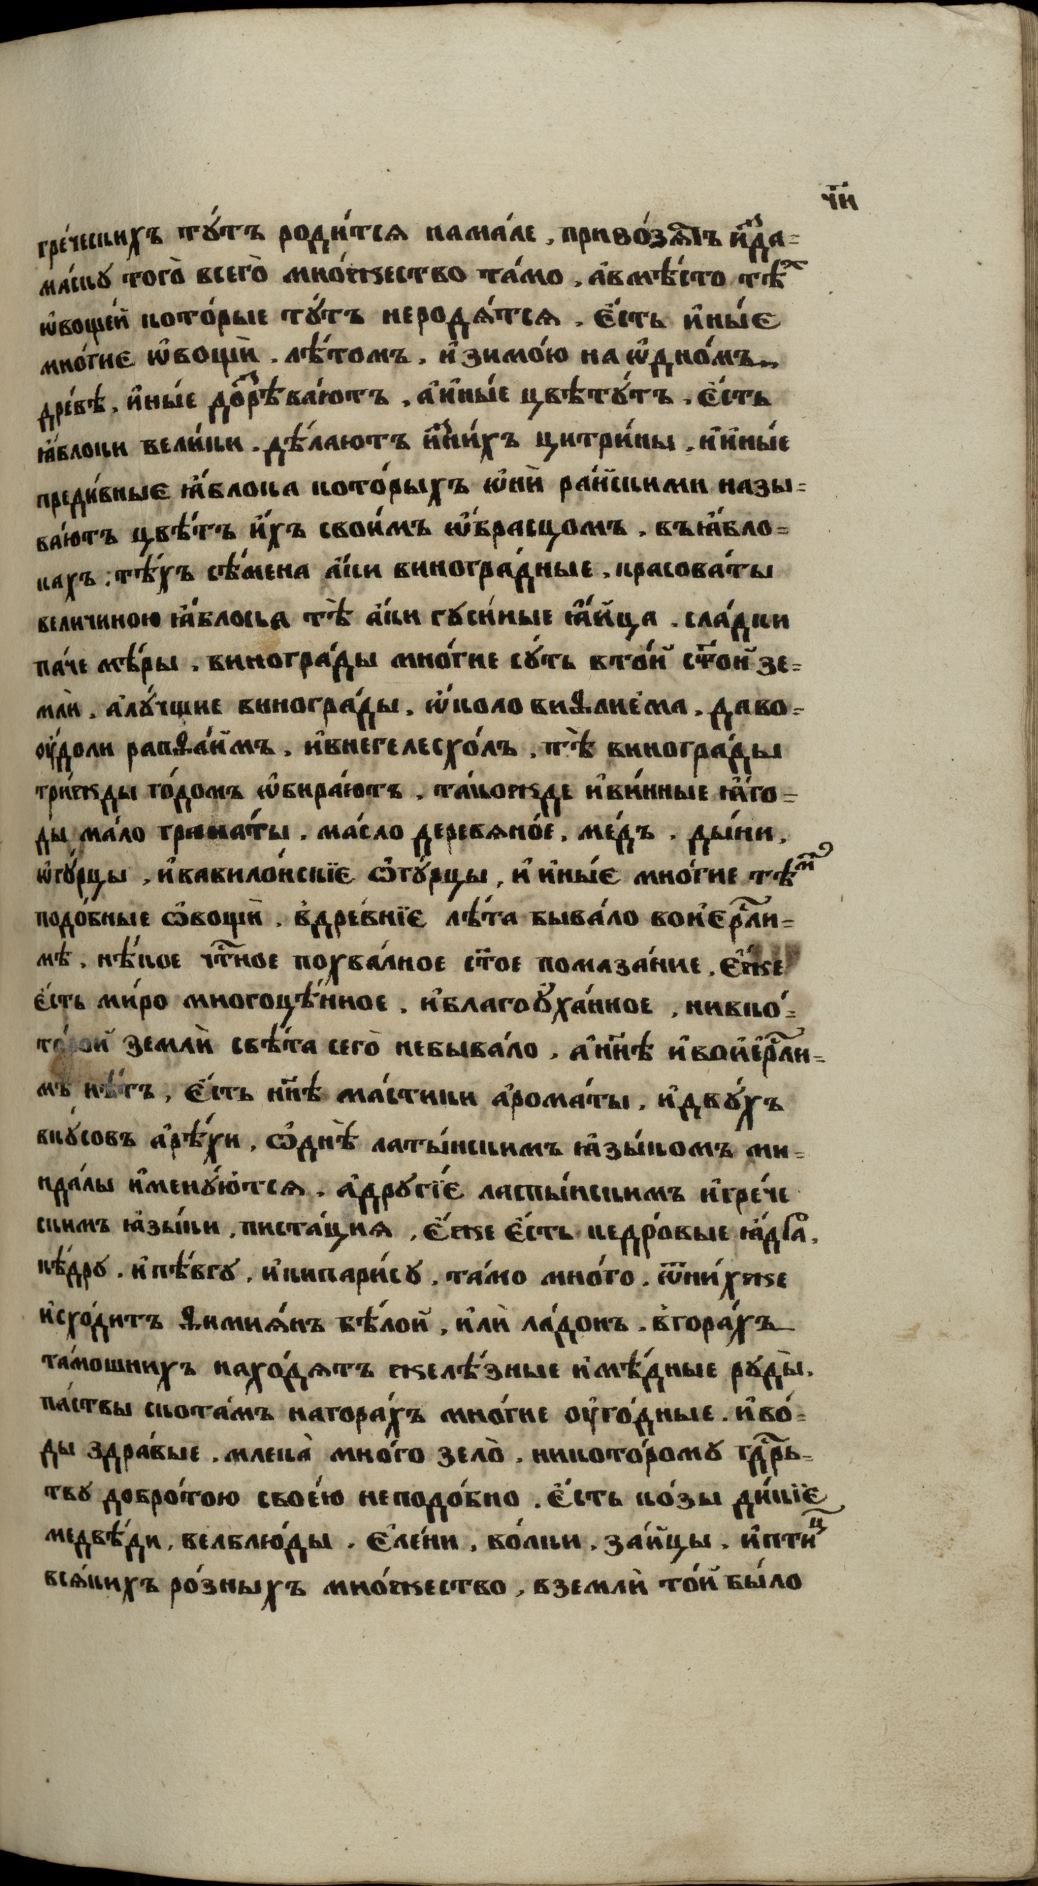 ч҃и
гре́ческихъ ту́тъ роди́тся нама́ле, приво́зѧтъ и҆з̾да=
ма́ску того̀ всего̀ мно́жество та́мо, а҆вмѣ́сто тѣ́х
ѡ҆воще́й кото́рые ту́тъ неродѧ́тсѧ. є҆́сть и҆ны́є
мно́гиє ѡ҆вощѝ. лѣ́томъ, и҆зимо́ю на ѡ҆дно́мъ
дре́вѣ, и҆ны́е дозрѣва́ютъ, а҆и҆ны́е цвѣту́тъ, є҆́сть
ꙗ҆́блоки вели́ки. дѣ́лаютъ и҆з̾ни́хъ цитри́ны, и҆и҆ны́е
преди́вныє ꙗ҆́блока кото́рыхъ ѡ҆нѝ ра́йскими назы=
ва́ютъ цвѣ́тъ и҆́хъ свои́мъ ѡ҆́брасцомъ, въꙗ҆́бло=
кахъ: тѣ́хъ сѣ́мена а҆́ки виногра́дные, красова́ты
величиною ꙗ҆́блока тѣ̀ а҆́ки гуси́ные ꙗ҆́йца. сла́дки
па́че мѣ́ры, виногра́ды мно́гие су́ть вто́й ст҃о́й зе=
млѝ, а҆лу́чщие виногра́ды, ѡ҆́коло виѳлие́ма, да во=
ѹ҆до́ли раѳаи́мъ, и҆внегелесхо́лъ, тѣ̀ виногра́ды
три́жды го́домъ ѡ҆бира́ютъ, та́кожде и҆ви́нные ꙗ҆́го=
ды ма́ло грана́ты, ма́сло деревяно́е, ме́дъ, ды́ни,
ѡ҆гу́рцы, и҆вавило́нскїє ѡ҆гу́рцы, и҆ и҆ны́є мно́гие тѣ́м
подо́бные ѡ҆вощѝ. в̾дре́внїє лѣ́та быва́ло воиєрⷭ҇ли=
мѣ, нѣ́кое чⷭ҇тное похва́лное ст҃ое помаза́ние, є҆́же
є҆́сть ми́ро многоцѣ́нное, и҆благоѹха́нное, никко́=
то́рой землѝ свѣ́та сего̀ небыва́ло, а҆нн҃ѣ и҆воиєрⷭ҇ли=
мѣ нѣ́тъ, є҆́сть нн҃ѣ ма́стики а҆рома́ты, и҆дву́хъ
вку́совъ а҆рѣ́хи, ѡ҆днѣ̀ латы́нскимъ ꙗ҆зы́комъ ми=
нда́лы и҆мену́ютсѧ, а҆други́є ласпы́нскимъ и҆гре́че
скимъ ꙗ҆зы́ки, писта́циѧ, є҆́же є҆́сть кедро́вые ꙗ҆́дра,
кѣ́дру, и҆пѣ́вгу, и҆кипари́су, та́мо мно́го, ѿни́хже
и҆схо́дитъ ѳимиѧ́нъ бѣ́лой, и҆лѝ ла́донъ. в̾гора́хъ
та́мошнихъ нахо́дѧтъ желѣ́зные и҆мѣ́дные руды̀,
па́ствы ското́мъ нагора́хъ мно́гие ѹ҆го́дные. и҆во́=
ды здра́вые, млека̀ мно́го зело̀, никото́рому гдⷭ҇рь=
тву добро́тою свое́ю неподо́бно. є҆́сть ко́зы ди́кїє
медвѣ́ди, велблю́ды, є҆ле́ни, во́лки, за́йцы, и҆пти́ц
всѧ́кихъ ро́зныхъ мно́жество, вземлѝ то́й бы́ло